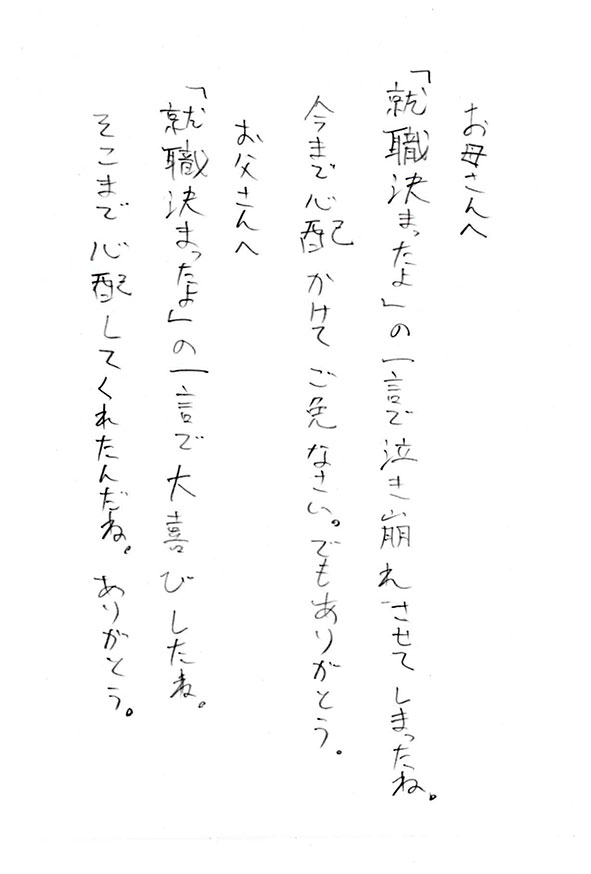 お母さんへ
「就職決まったよ」の一言で泣き崩れさせてしまったね。
今まで心配かけてご免なさい。でもありがとう。
お父さんへ
「就職決まったよ」の一言で大喜びしたね。
そこまで心配してくれたんだね。ありがとう。